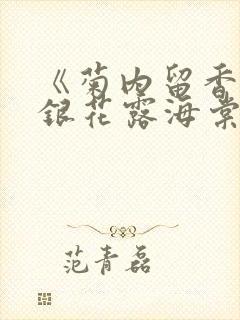 《菊内留香
銀花露海棠
范青磊